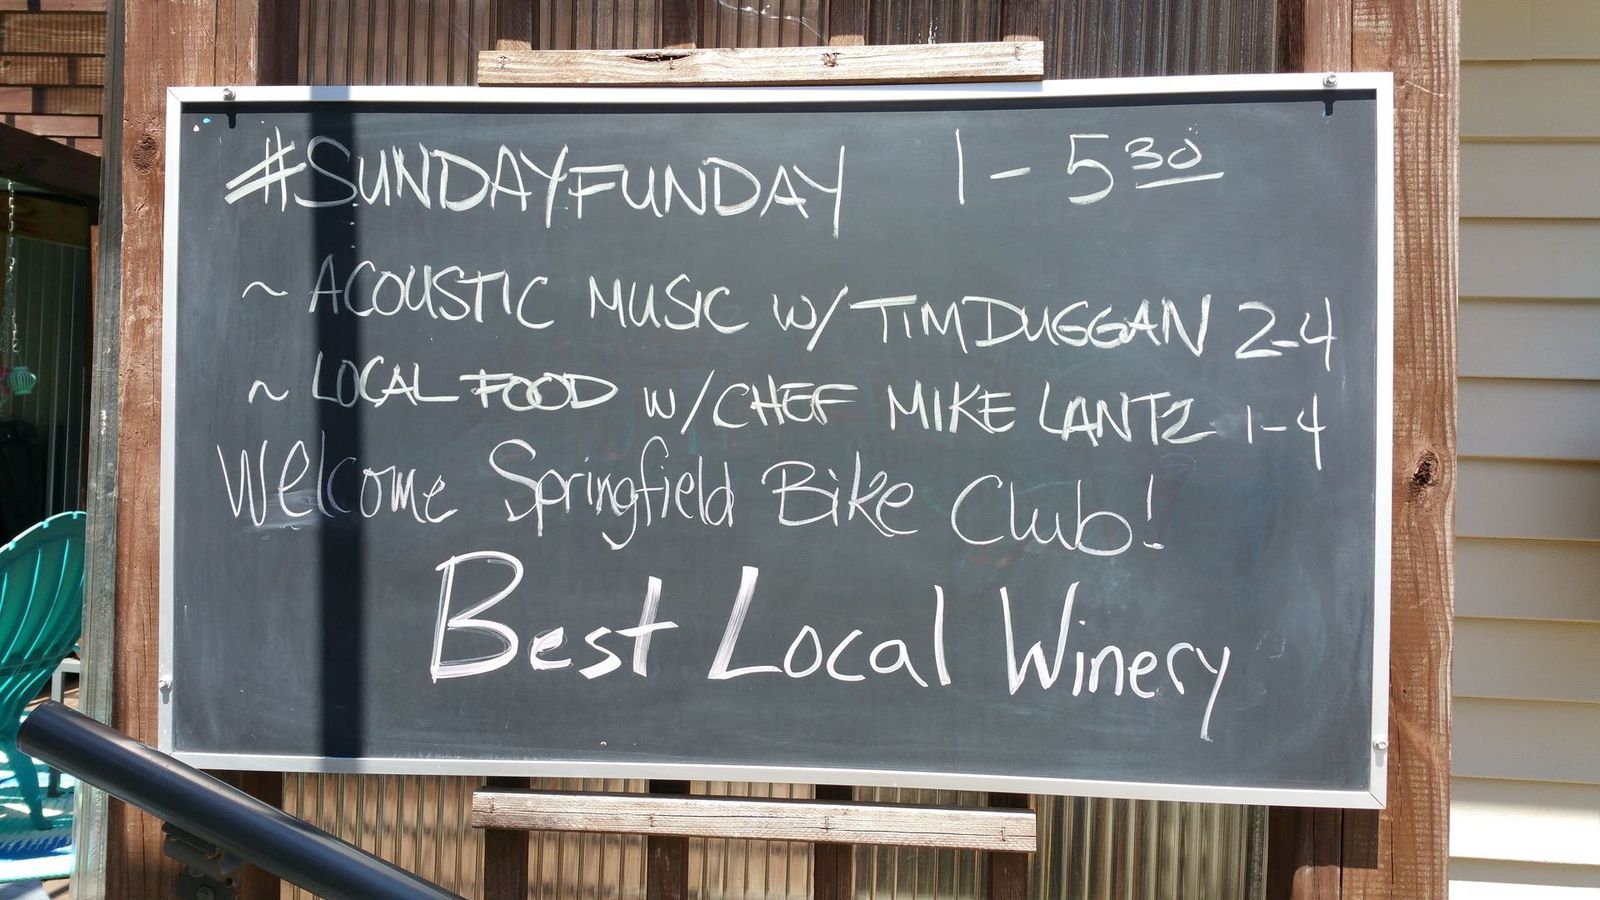 #SUNDAYFUNDAY 1-5 30
~ ACOUSTIC MUSIC W/ TIM DUGGAN 2-4
~ LOCAL FOOD W/ CHEF MIKE LANTZ 1-4
Welcome Springfield Bike Club!
Best Local Winery